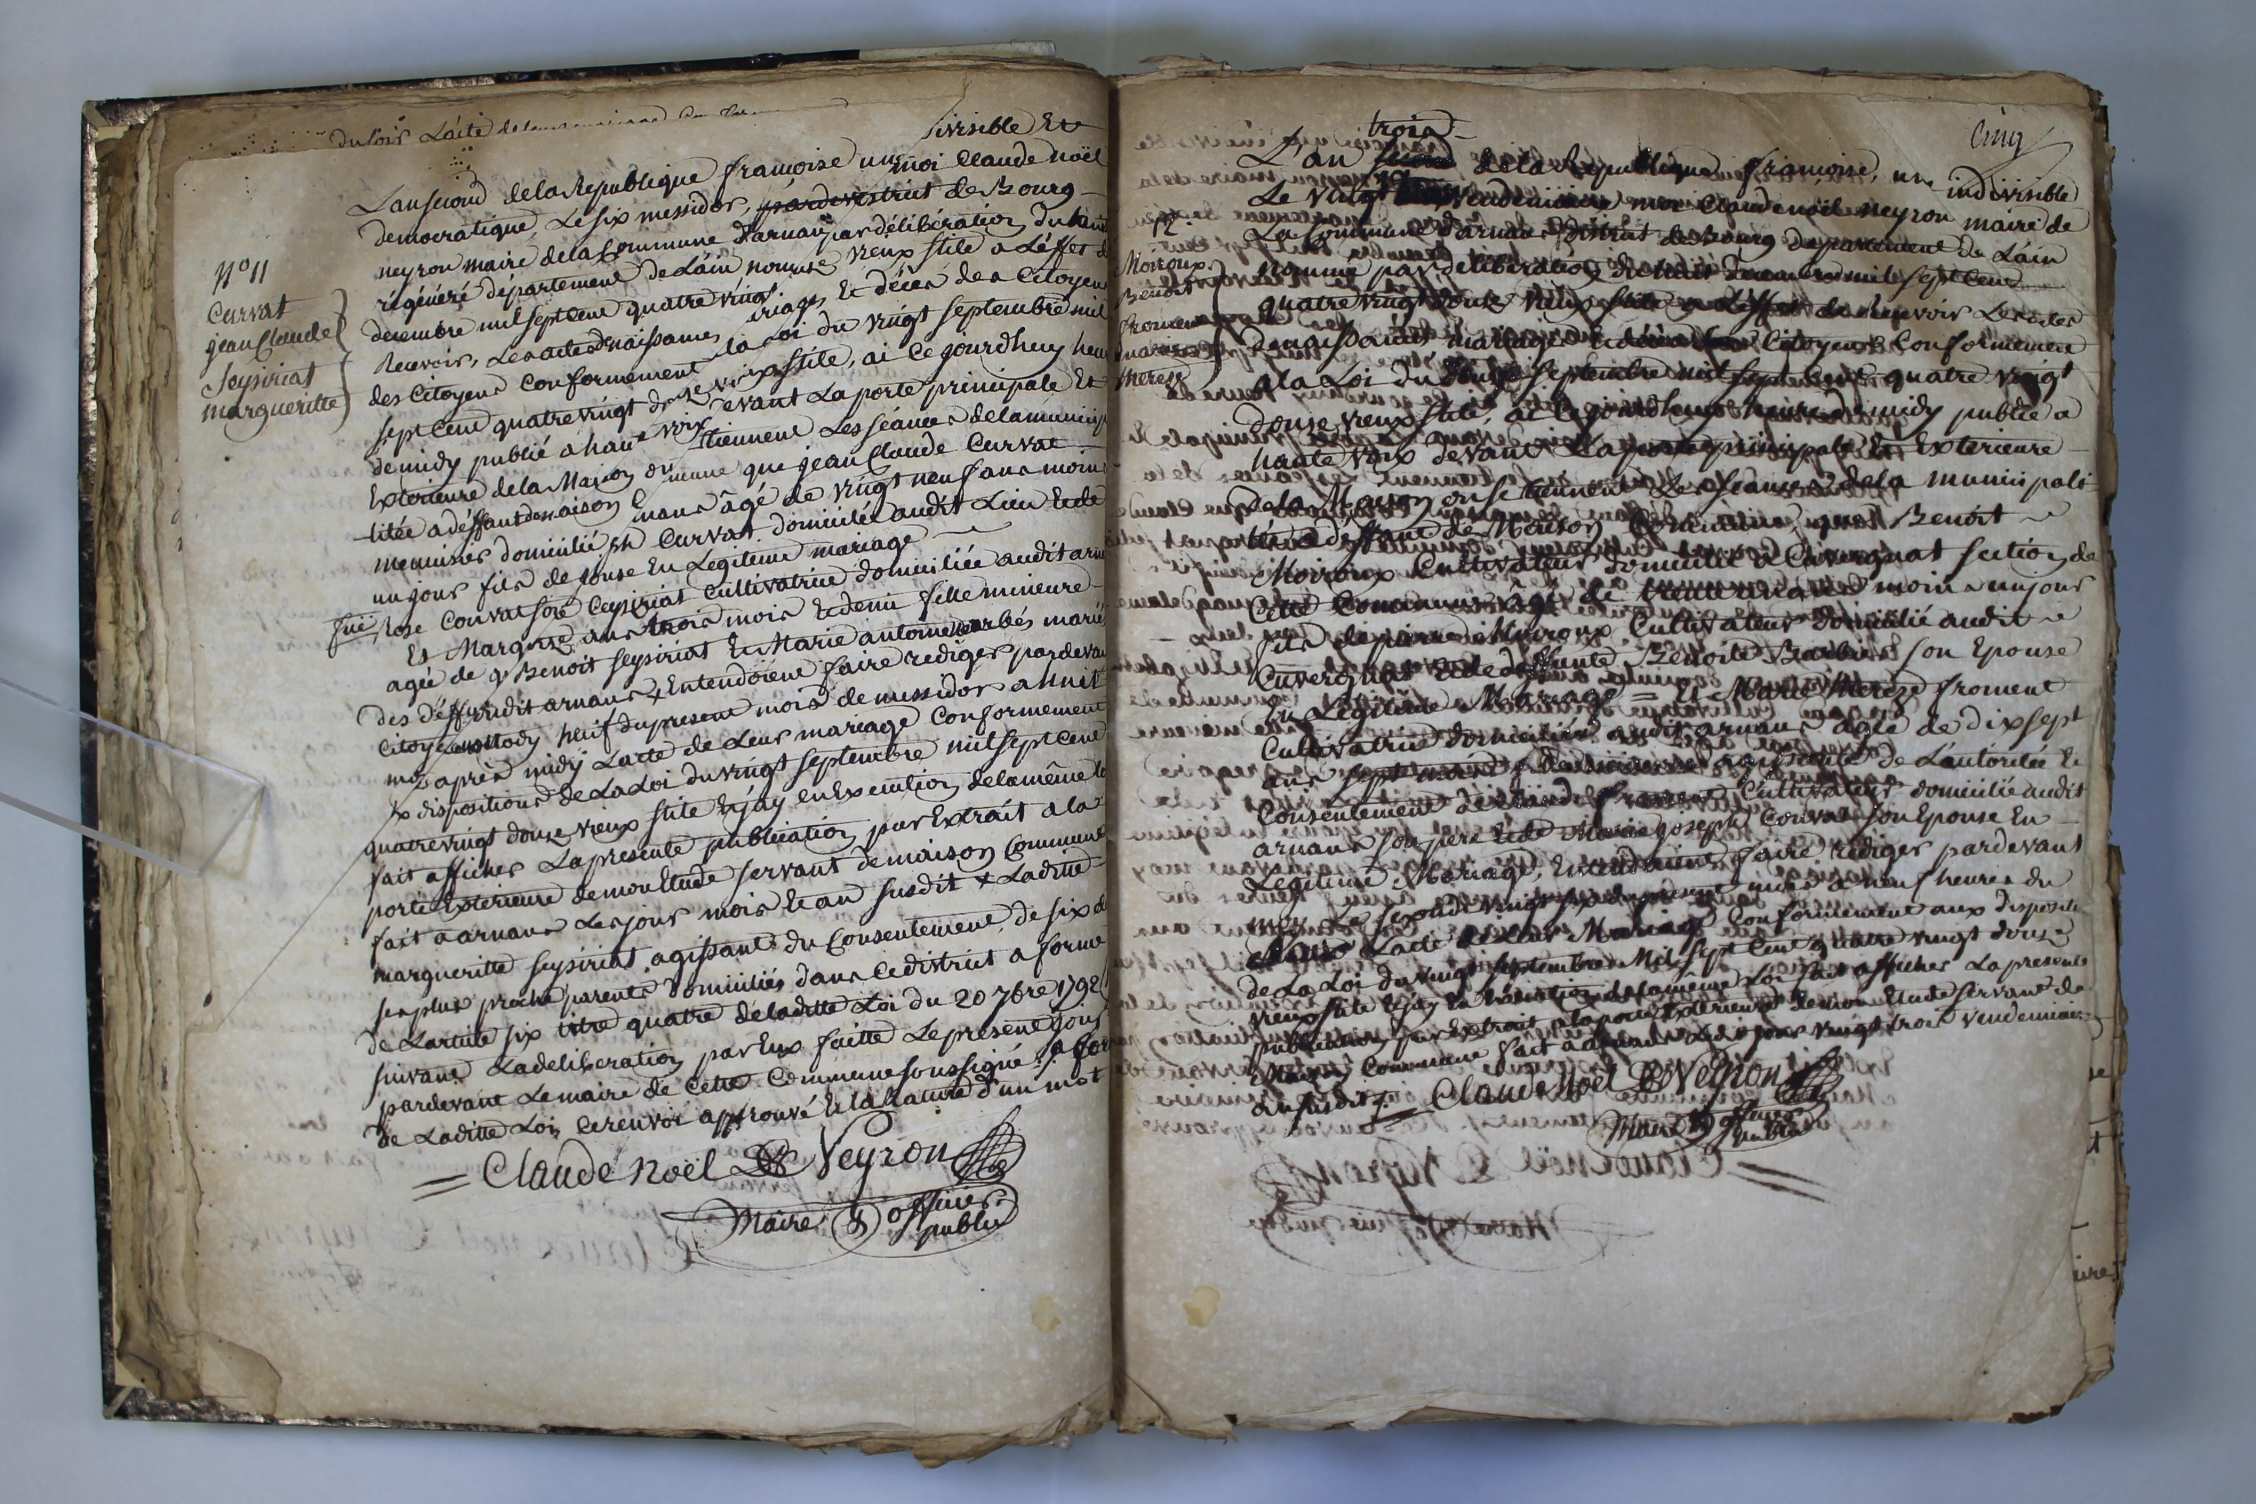 du soir L'acte de
L'an second de la Republique françoise un
ivisible Et
democratique, Le six messidor, moi Claude noël
neyron maire de la Commune d'arnans pardevistrict de Bourg
régénéré departement de L'ain nommé par délibération du huit
decembre mil sept Cent quatre vingt vieux stile a L'effet de
Recevoir, Les actes de naissances, riages, Et décès des Citoyens
des Citoyens Conformement la Loi du vingt septembre mil
sept Cent quatre vingt douze vieux stile, ai Ce jourdhuy heure
de midy publié a haute voix evant La porte principale Et
Exterieure de la Maison ou tiennent Les séances de la municip
litée a déffaut de maison C mune que jean Claude Curvat
menuisier domicilié mans âgé de vingt neuf ans moins
un jour fils de jph Curvat domicilié audit Lieu Et de
fue Rose Convat son Epouse En Legitime mariage
Et Margueritte Ceysiriat Cultivatrice domiciliée audit arna
agée de ans trois mois Et demi fille mineure
des deffunts Benoit Seysiriat Et Marie antoinette barbés mariés
Citoyens dudit arnans, Entendoient faire rediger pardevan
moy neuf du present mois de messidor a huit
après midy L'acte de Leur mariage Conformement
x dispositions de La Loi du vingt septembre mil sept Cent
quatre vingt douze vieux stile Et j'ay en Execution de la même Loi
fait afficher La presente publication par Extrait a la
porte Exterieure de mon Etude servant de maison Commune
fait a arnans Les jour mois Et an susdit + Laditte
margueritte seysiriat agissant du Consentement de six de
ses plus proche parents domiciliés dans Ce district a forme
de L'article six titre quatre de laditte Loi du 20 7bre 1792
suivant La deliberation par Eux faitte Le present jour
pardevant Le maire de Cette Commune soussigné
de Laditte Loi, Ce renvoi approuvé Et la Rature d'un mot
= Claude noël Neyron
Maire & officier
public
N° 11
Curvat
jean Claude
Seysiriat
margueritte
Cinq
trois
L'an de la Republique françoise, une indivisible
Le vingt vendemiaire moi Claude noël neyron maire de
La Commune d'arnans district de Bourg departement de L'ain
nommé par deliberation du huit decembre mil sept Cent
quatre vingt douze vieux stile a L'effet de Recevoir Les actes
de naissances mariages Et décès des Citoyens Conformement
a la Loi du septembre mil sept Cent quatre vingt
douze vieux stile, ai Ce jourdhuy heure de midy publié a
haute voix devant La porte principale Et Exterieure
de la Maison ou se tiennent Les séances de la municipali
té a deffaut de Maison Commune, que Benoit
Moiroux Cultivateur domicilié a Cuvergnat section de
Cette Commune âgé de trente ans moins un jour
fils de pierre Moiroux Cultivateur domicilié audit
Cuvergnat Et de deffunte Benoite Barbier son Epouse
En Légitime Mariage = Et Marie therese froment
Cultivatrice domiciliée audit arnans agée de dix sept
ans sept mois de L'autorité Et
Consentement de froment Cultivateur domicilié audit
arnans son pere Et de Marie joseph Convat son Epouse En
Légitime Mariage, Entendoient faire rédiger pardevant
moy Le sextidi vingt six du present mois a neuf heures du
L'acte de Leur Mariage Conformement aux dispositi
de La Loi du vingt septembre Mil sept Cent quatre vingt douze
vieux stile Et j'ay En Execution de la même Loi fait afficher La presente
publication par Extrait a la porte Exterieure de mon Etude servant de
Maison Commune fait a arnans Ledit jour vingt trois vendemiaire
an susdit =
Claude Noël Neyron
Maire & officier
public
12
Moiroux
Benoit
froment
marie
therese